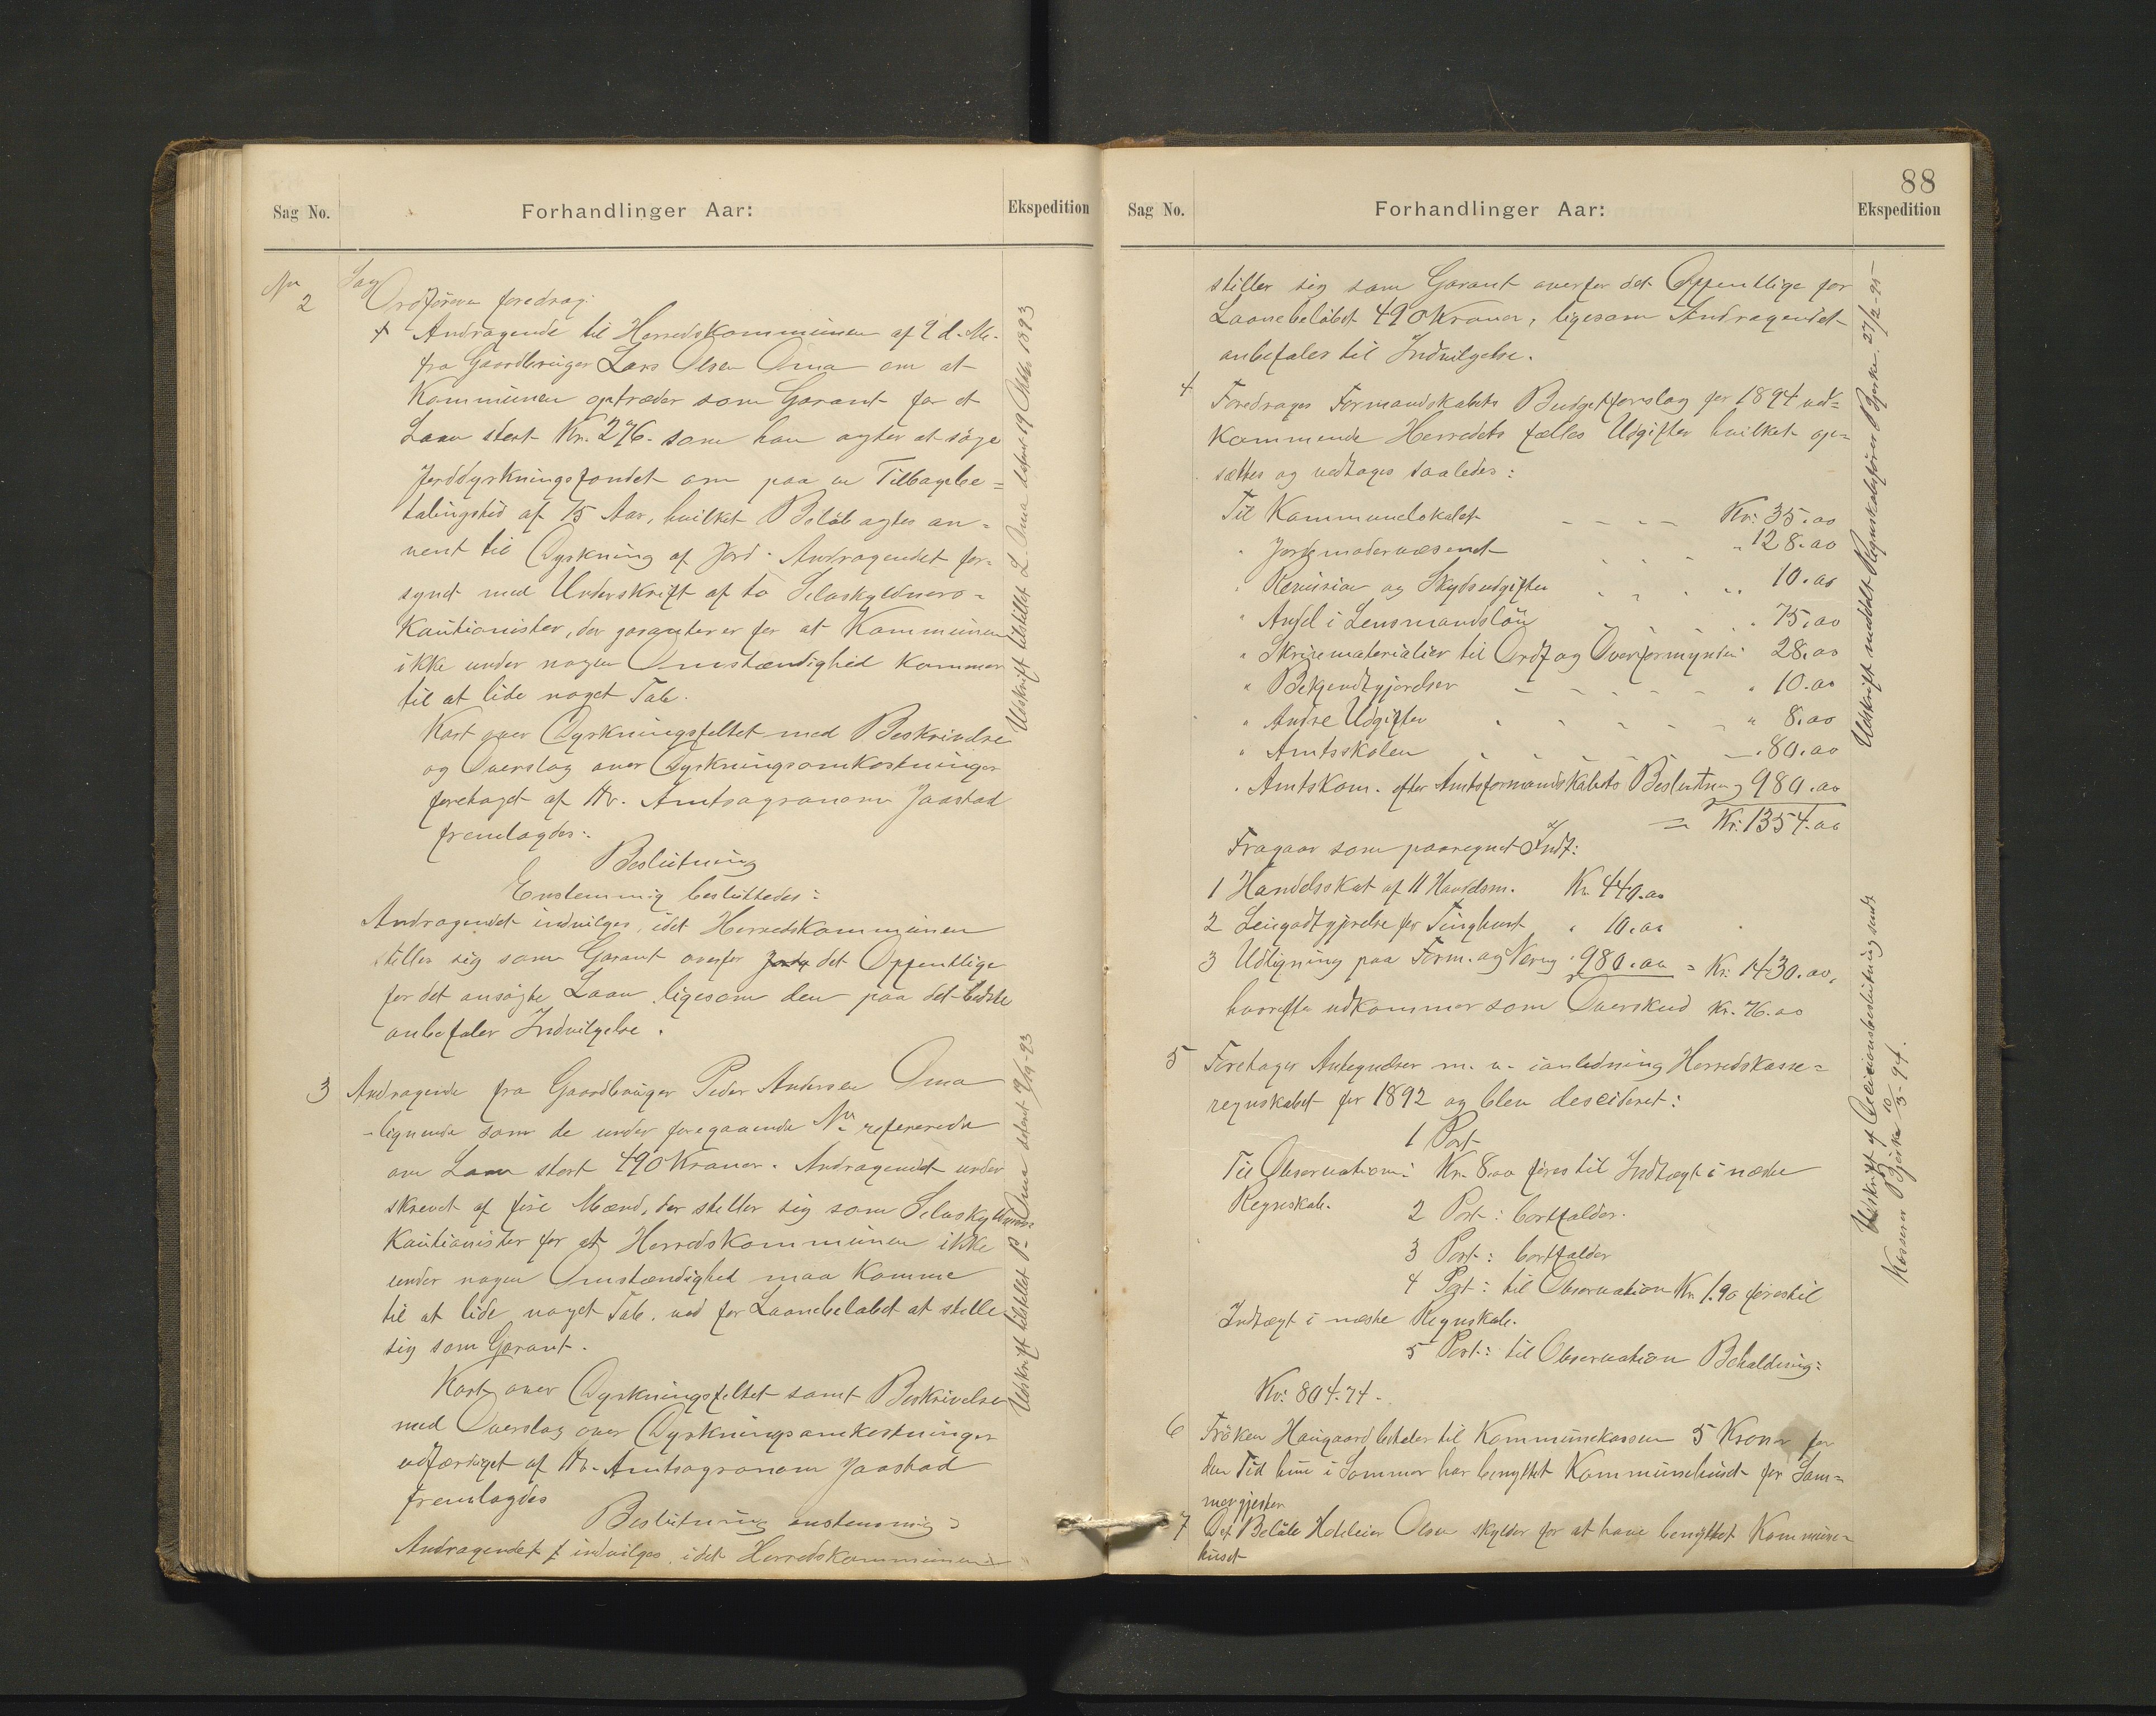 Sag No.
Forhandlinger Aar:
Ekspedition
No 2
Sag
Ordføreren foredrog:
Andragende til Herredskommunen af 9 d. M.
fra Gaardbruger Lars Olsen Oma om at
Kommunen optræder som Garant for et
Laan stort Kr. 276. som han agter at søge
Jorddyrkningsfondet om paa en Tilbagebe=
talingstid af 15 Aar, hvilket Beløb agtes an=
vent til Dyrkning af Jord. Andragendet for=
synet med Underskrift af to Selvskyldnero=
Kautionister, der garanterer for at Kommunen
ikke under nogen Omstændighed kommer
til at lide noget Tab.
Kart over Dyrkningsfeltet med Beskrivelse
og Overslag over Dyrkningsomkostninger
foretaget af Hr. Amtsagronom Jaastad
fremlagdes:
Beslutning
Enstemmig besluttedes:
Andragendet indvilges, idet Herredskommunen
stiller sig som Garant overfor det Offentlige
for det ansøgte Laan ligesom den paa det bedste
anbefaler Indvilgelse.
Udskrift tilstillet L. Oma datert 19 Oktbr 1893
3 Andragende fra Gaardbruger Peder Andersen Oma
-lignende som de under foregaaende No refererede
om Laan stort 490 Kroner. Andragendet under
skrevet af fire Mænd, der stiller sig som Selvskyldnero=
Kautionister for at Herredskommunen ikke
under nogen Omstændighed maa komme
til at lide noget Tab, ved for Laanebeløbet at stille
sig som Garant.
Kart over Dyrkningsfeltet samt Beskrivelse
med Overslag over Dyrkningsomkostninger
udfærdiget af Hr. Amtsagronom Jaastad
fremlagdes
Beslutning enstemmig:
Andragendet indvilges, idet Herredskommunen
Udskrift tilstillet P. Oma datert 19/10-93
88
Sag No.
Forhandlinger Aar:
Ekspedition
stiller sig som Garant overfor det Offentlige for
Laanebeløbet 490 Kroner, ligesom Andragendet
anbefales til Indvilgelse.
4 Foredrages Formandskabets Budgetforslag for 1894 ved=
kommende Herredets fælles Udgifter hvilket op=
sættes og vedtages saaledes:
Til Kommunelokalet - - - - Kr. 35.00
" Jordemodervæsenet " 128.00
" Revision og Skydsudgifter " 10.00
" Andel i Lensmandsløn " 75.00
" Skrivematerialier til Ordf og Overformynderi 28.00
" Bekjendtgjørelser - - - - - " 10.00
" Andre Udgifter " 8.00
" Amtsskolen " 80.00
" Amtskom. efter Amtsformandskabets Beslutning 980.00
= Kr. 1354.00
Fragaar som paaregnet Indt:
1 Handelsskat af 11 Handelsm. Kr. 440.00
2 Leiegodtgjørelse for Tinghuset " 10.00
3 Udligning paa Form. og Næring " 980.00 = Kr. 1430.00,
hvorefter udkommer som Overskud Kr. 76.00
Udskrift meddelt Regnskabsfører Bjerke. 27/2-95
5 Foretages Antegnelser m. v. i anledning Herredskasse=
regnskabet for 1892 og blev descideret:
1 Post
Til Observation: Kr. 8.00 føres til Indtægt i næste
Regnskab.
2 Post: bortfalder.
3 Post: bortfalder
4 Post: til Observation Kr. 1.90 føres til
Indtægt i næste Regnskab.
5 Post: til Observation Beholdning:
Kr. 804.74.
Udskrift af Decisionsbeslutning sendt
Kasserer Bjerke 10/3-94.
6 Frøken Haugaard betaler til Kommunekassen 5 Kroner for
den Tid hun i Sommer har benyttet Kommunehuset for Som=
mergjester
7 Det Beløb Hoteleier Olsen skylder for at have benyttet Kommune=
huset